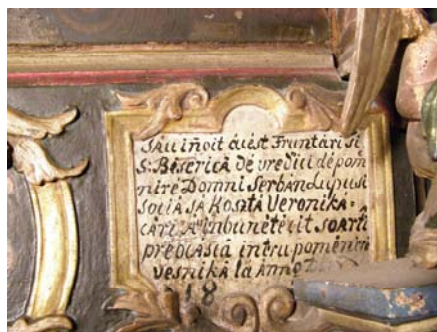 SAu iñoit áćest Fruntári si
S: Beserică dé vrednici dé pom
nire Domni Serban Lupu si
sociá sA Kosztá Veronika:
cári A inbunétécit soárte
préoćasĭă intru poménire
vesnikă lá Anno
18